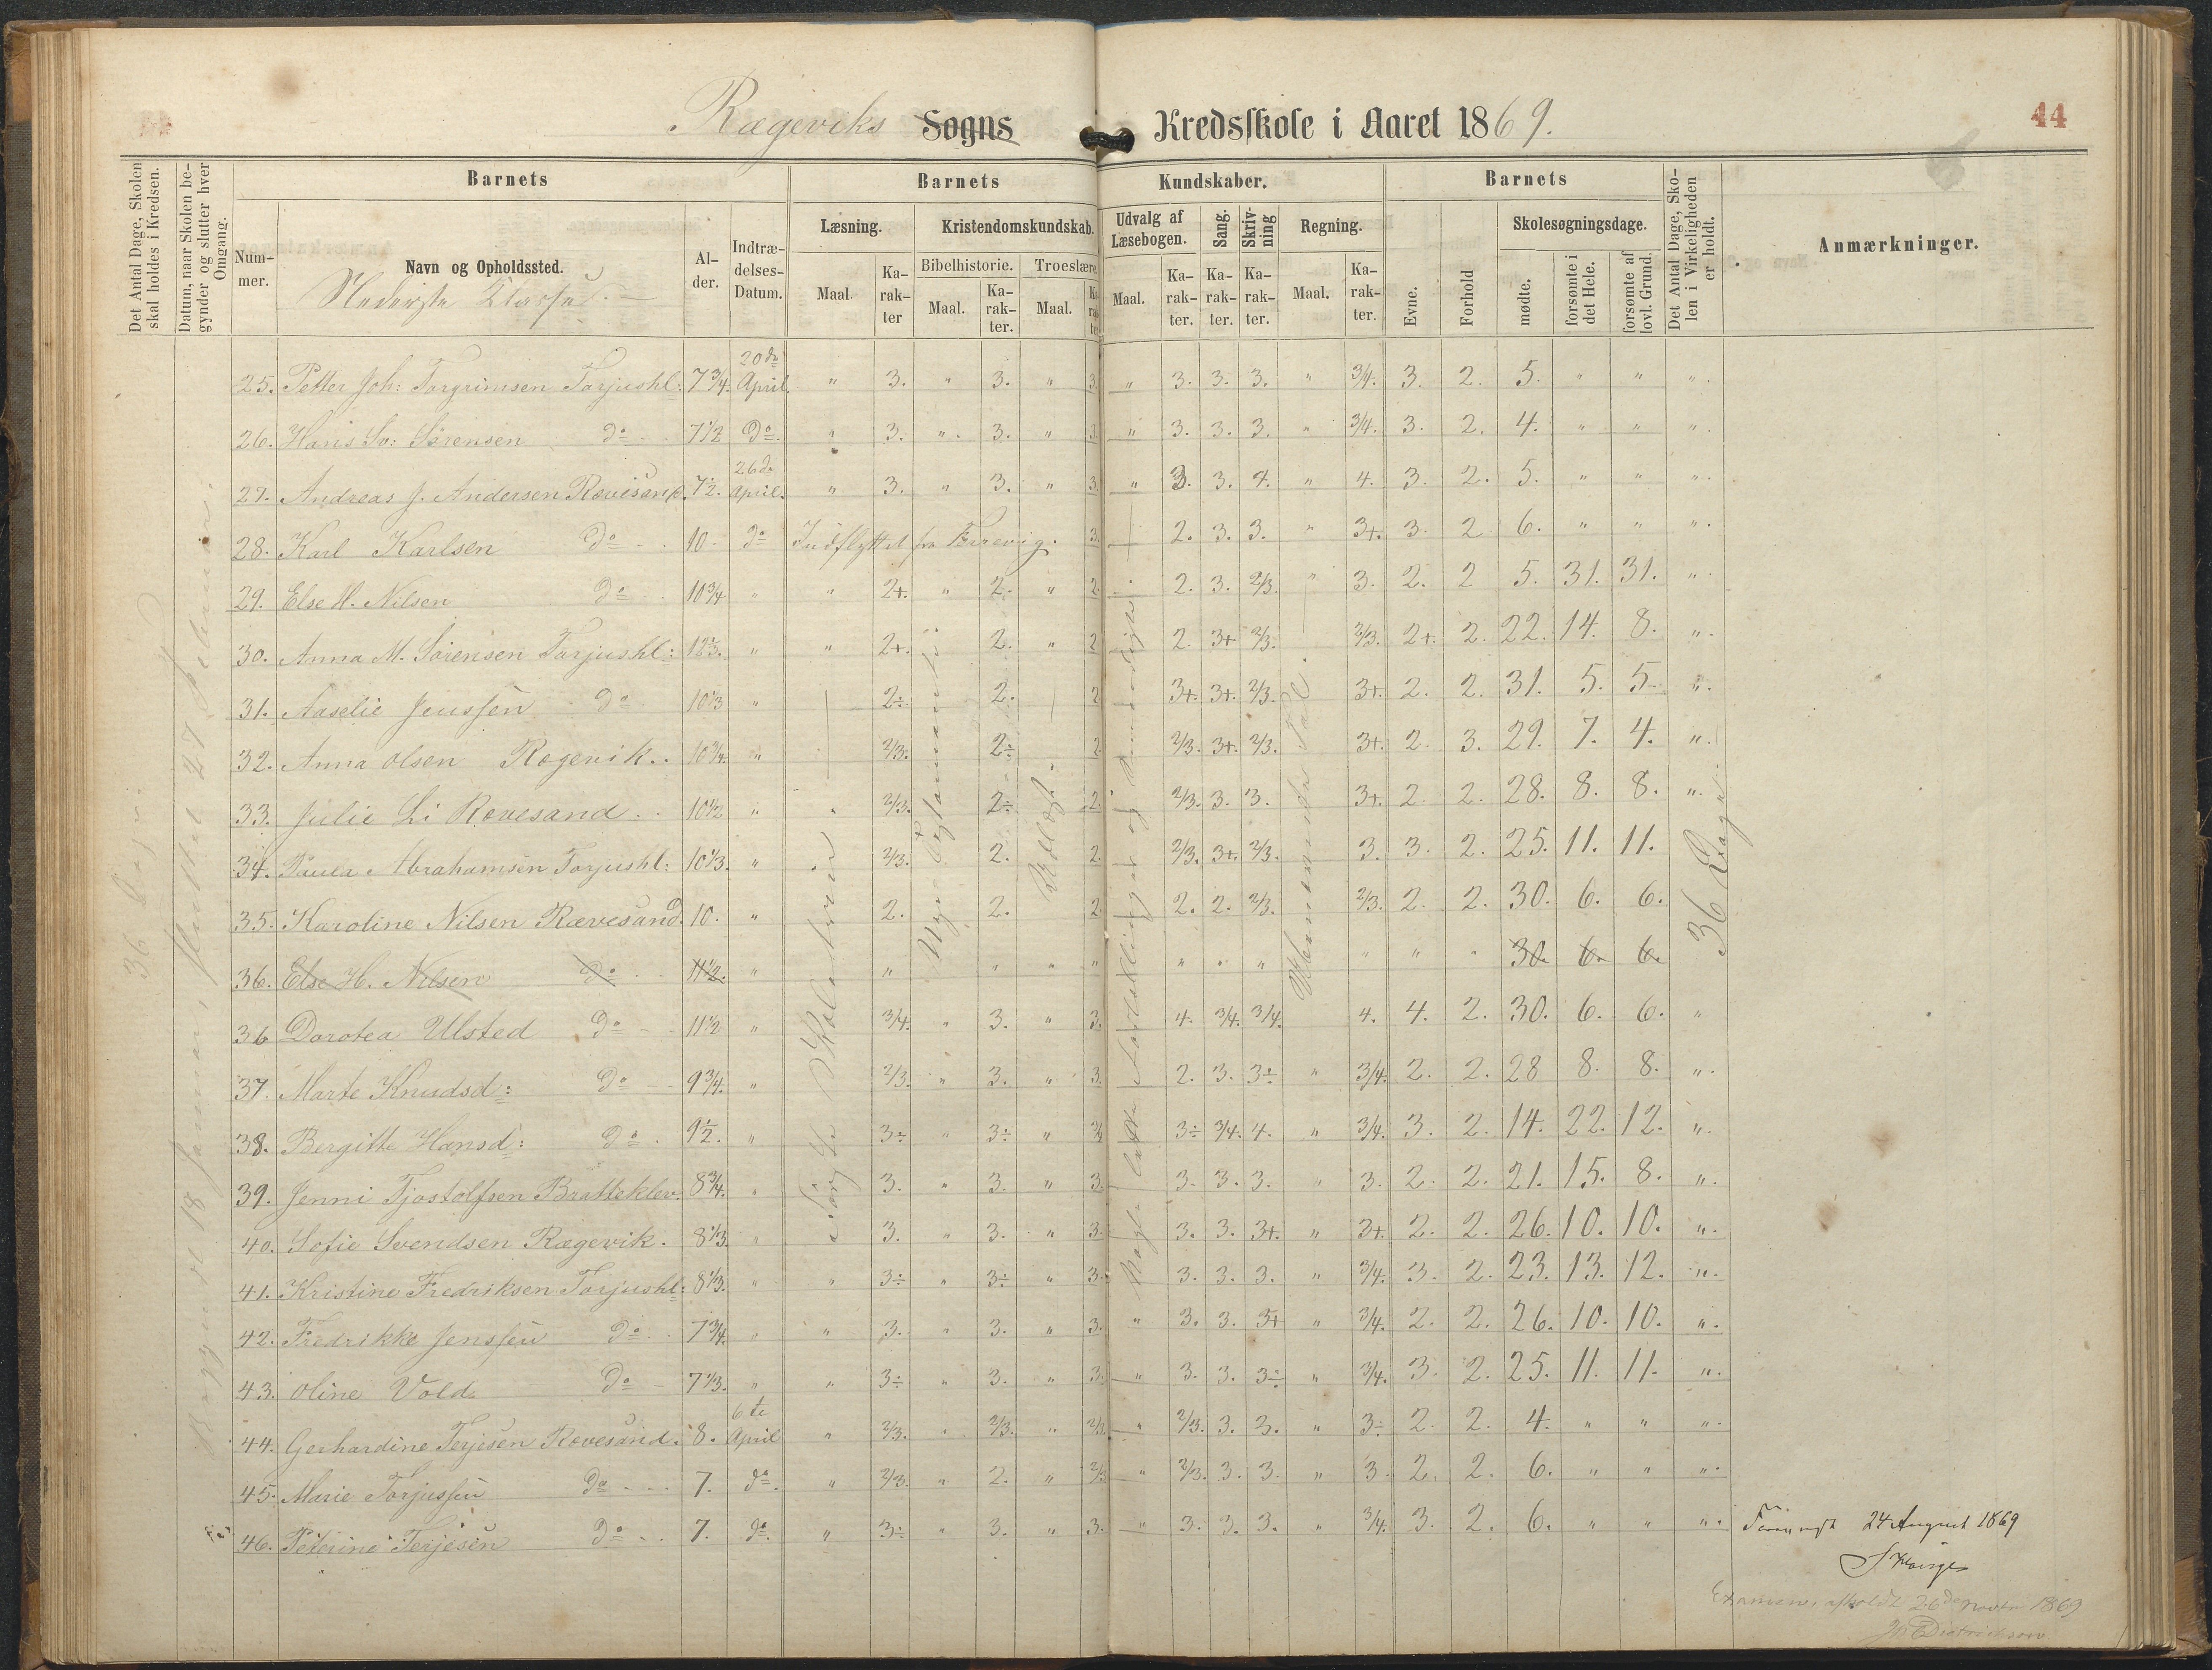 Rægeviks Sogns Kredsskole i Aaret 1869.
44
Det Antal Dage, Skolen skal holdes i Kredsen.
Datum, naar Skolen begynder og slutter hver Omgang.
Barnets
Barnets
Kundskaber.
Barnets
Det Antal Dage, Skolen i Virkeligheden er holdt.
Anmærkninger.
Nummer.
Navn og Opholdssted.
Nederste Klasse.
Alder.
Indtrædelses-Datum.
Læsning.
Kristendomskundskab.
Udvalg af Læsebogen.
Sang.
Skrivning
Regning.
Evne.
Forhold
Skolesøgningsdage.
Maal.
Karakter
Bibelhistorie.
Troeslære.
Maal.
Karakter.
Maal.
Karakter
Maal.
Karakter.
Karakter.
Karakter.
Maal.
Karakter.
mødte.
forsømte i det Hele.
forsømte af lovl. Grund.
25. Petter Joh: Torgrimsen Torjushl: 7 3/4. 20de April. " 3. " 3. " 3. " 3. 3. 3. " 3/4. 3. 2. 5. " " "
26. Hans Sv: Sørensen do 7 1/2 do. " 3. " 3. " 3. " 3. 3. 3. " 3/4. 3. 2. 4. " " "
27. Andreas J. Andersen Rævesand. 7 1/2. 26de April. " 3. " 3. " 3. " 3. 3. 4. " 4. 3. 2. 5. " " "
28. Karl Karlsen do 10 do Indflyttet fra Færevig. 3. 2. 3. 3. " 3+. 3. 2 6. " " "
29. Else H. Nilsen do 10 3/4 " " 2+. " 2. " 2. 2. 3. 2/3. " 3. 2. 2 5. 31. 31. "
30. Anna M. Sørensen Torjushl: 12 1/3. " " 2+. 2. " 2 2. 3+ 2/3. 2/3. 2+. 2. 22. 14. 8. "
31. Aaselie Jenssen do 10 1/3 " 2÷ 2. 2 3+. 3+. 2/3. 3+. 2. 2. 31. 5. 5. "
32. Anna Olsen Rægevik. 10 3/4. " 2/3. 2÷ 2. 2/3. 3+. 2/3. 3+. 2. 3. 29. 7. 4. "
33. Julie Li Rævesand. 10 1/2 " 2/3. 2÷ 2. 2/3. 3. 3. 3+. 2. 2. 28. 8. 8. "
34. Paula Abrahamsen Torjushl: 10 1/3. " 2/3. 2. 2. 2/3. 3+. 2/3. 3. 3. 2. 25. 11. 11.
35. Karoline Nilsen Rævesand. 10. " 2. 2. 2. 2. 2. 2/3. 2/3. 2. 2. 30. 6. 6.
36. Else H. Nilsen do 11 1/2. " " " " " " " " " " " 30. 6. 6.
36 Dorotea Ulsted do 11 1/2 " 3/4. " 3. " 3. 4. 3/4. 3/4. 4. 4. 2. 30. 6. 6. "
37. Marte Knudsd: do 9 3/4. " 2/3. " 3. " 3. 2. 3. 3÷ " 3/4. 2. 2. 28 8. 8. "
38. Bergitte Hansd: do 9 1/2. " 3÷ " 3÷ " 3/4 3÷ 3/4. 4. " 3/4. 3. 2. 14. 22. 12. "
39. Jenni Tjostolfsen Bratteklev. 8 3/4. " 3. " 3. " 3. 3. 3. 3. " 3. 2. 2. 21. 15. 8. "
40. Sofie Svendsen Rægevik. 8 1/3. " 3. " 3. " 3. 3. 3. 3+. " 3+. 2. 2. 26. 10. 10. "
41. Kristine Fredriksen Torjushl: 8 1/3. " " 3÷ " 3÷ " 3. 3. 3. 3. " 3/4. 3. 2. 23. 13. 12. "
42. Fredrikke Jenssen do 7 3/4. " " 3. " 3. " 3. " 3. 3. 3+ " 3/4. 2. 2. 26. 10. 10. "
43. Oline Vold do 7 1/3. " " 3÷ " 3. " 3. " 3. 3. 3÷ " 3/4. 3. 2. 25. 11. 11. "
44. Gerhardine Terjesen Rævesand. 8. 6te April " 2/3. " 2/3. " 2/3. " 2/3. 3. 3. " 3÷ 2. 2. 4. " " "
45. Marie Torjussen do 7. do. " 2/3. " 2. " 2/3 " 2/3. 3. 3. " 3. 2. 2. 6. " " "
46. Peterine Terjesen do 7. do. " 3÷ " 3. " 3. " 3. 3. 3. " 3/4. 3. 2. 6. " " "
36 Dage
Begyndt 18 Januar, sluttet 27 Februar.
Nye Testamente
36 Dage
24 August 1869
Examen, afholdt 26de Novbr 1869